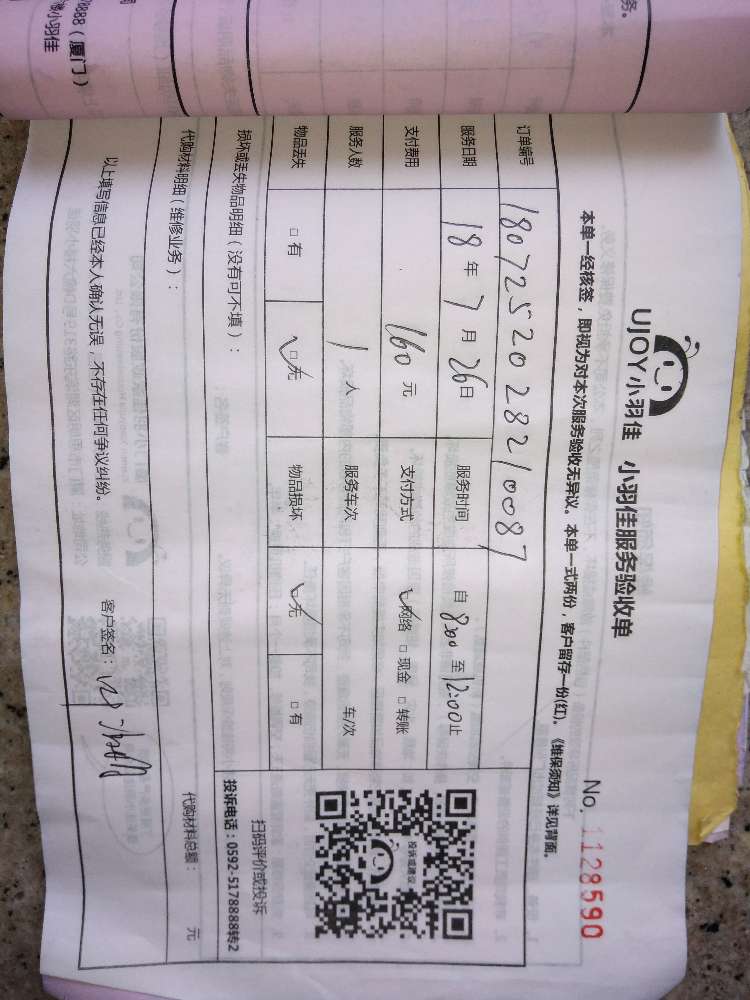 8888（厦门）
小羽佳
务。
UJOY小羽佳 小羽佳服务验收单
No. 1128590
本单一经核签，即视为对本次服务验收无异议。本单一式两份，客户留存一份(红)。《维保须知》详见背面。
订单编号 1807252028210087
服务日期 18 年 7 月 26 日 服务时间 自 8:00 至 12:00 止
支付费用 160 元 支付方式 网络 □ 现金 □ 转账
服务人数 1 人 服务车次 车/次
物品丢失 □ 有 □ 无 物品损坏 □ 无 □ 有
投诉或建议
扫码评价或投诉
投诉电话：0592-5178888转2
损坏或丢失物品明细（没有可不填）：
代购材料明细（维修业务）： 代购材料总额： 元
以上填写信息已经本人确认无误，不存在任何争议纠纷。 客户签名：